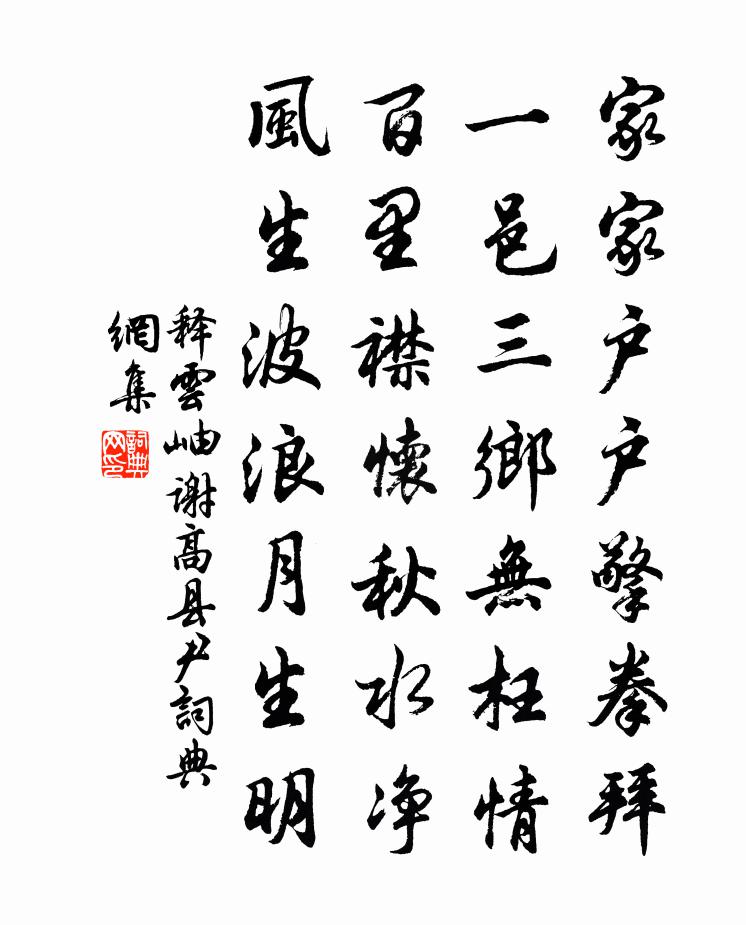 家家戶戶擎拳拜
一邑三鄉無枉情
百里襟懷秋水净
風生波浪月生明
释雲岫谢高县尹詞典
網集
詞典
网印